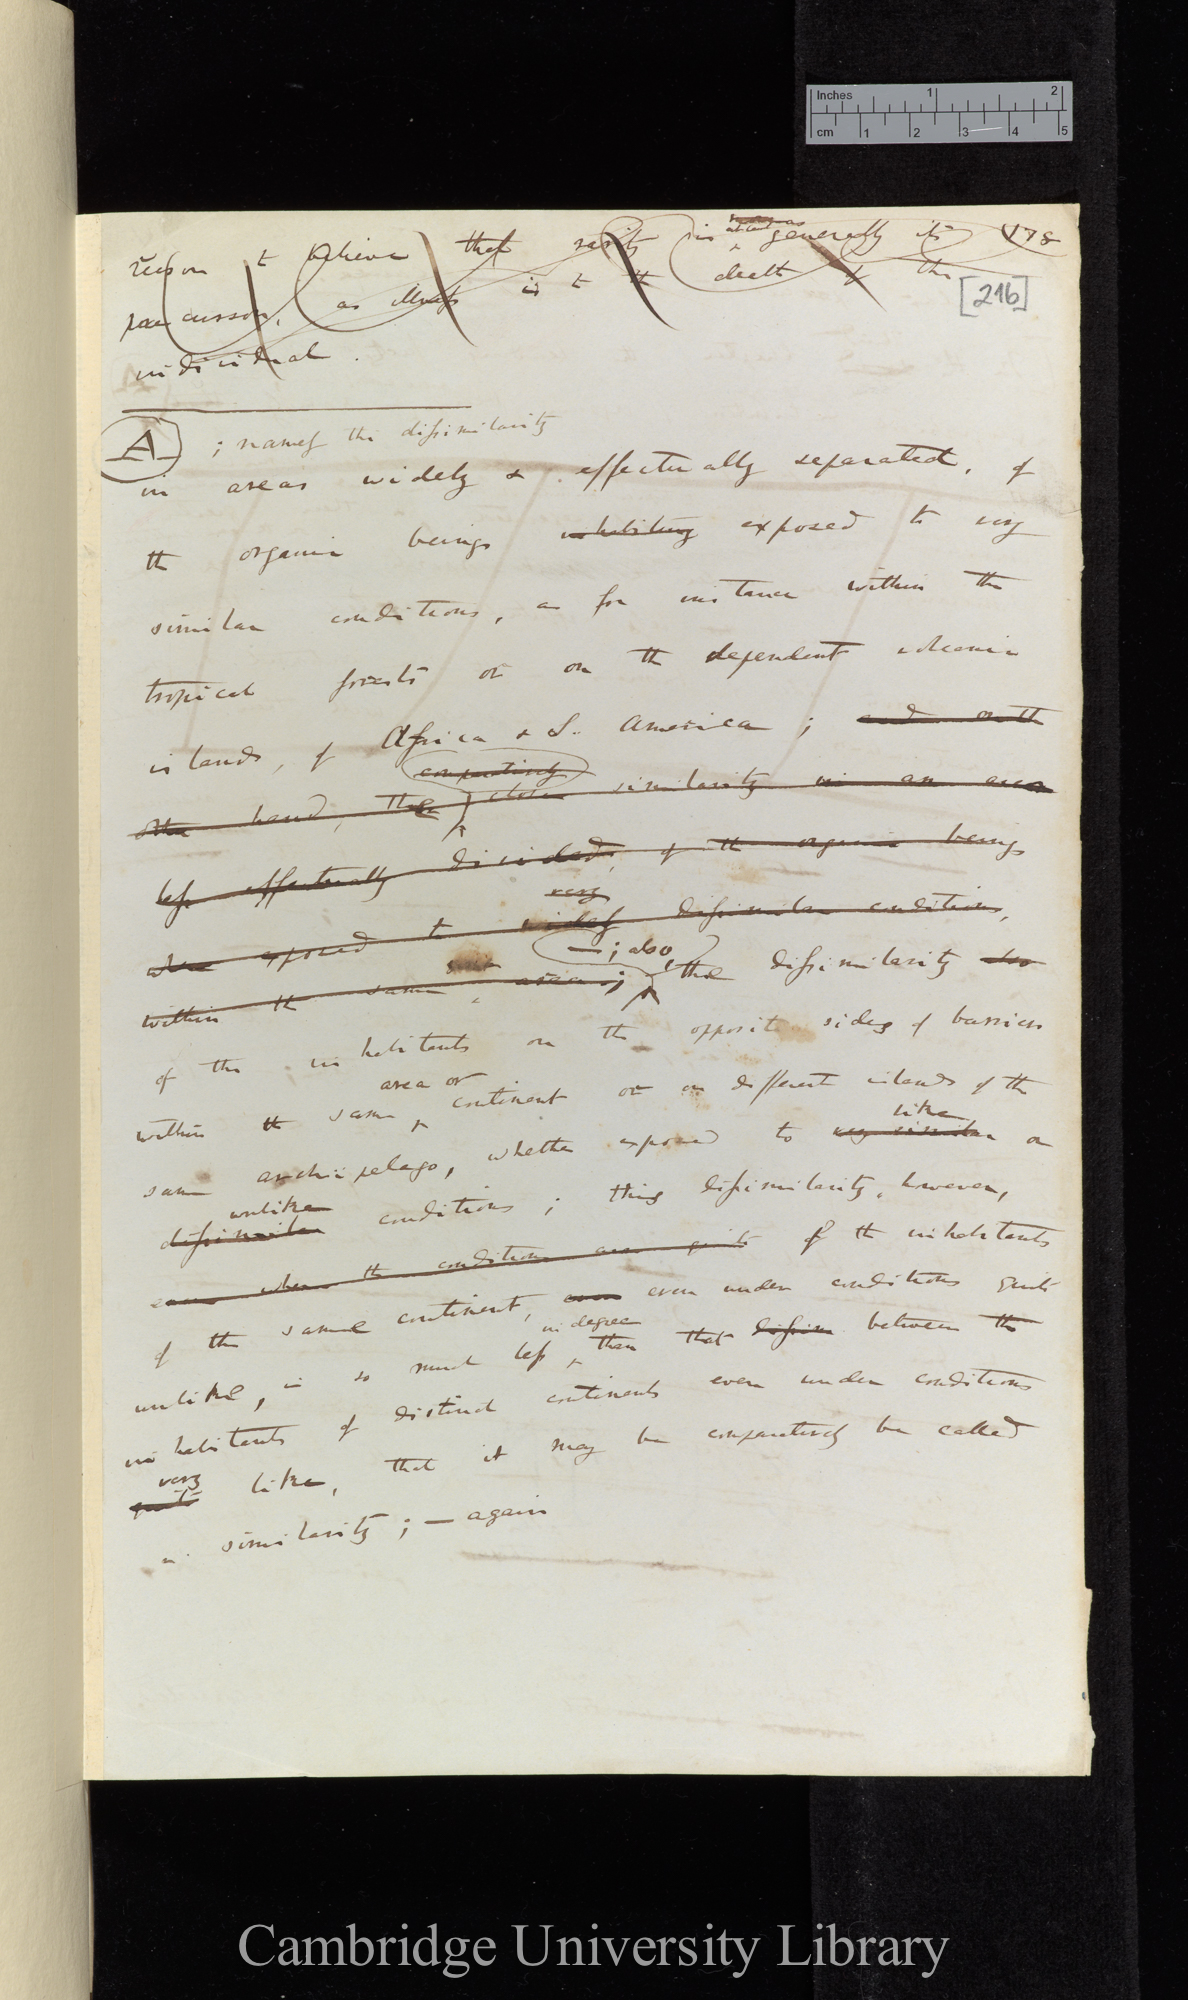 Inches 1 2
cm 1 2 3 4 5
178
[216]
reason to believe that rarity is generally its
precursor, as illness is to the death of the
individual.
A ; namely the dissimilarity
in areas widely & effectually separated, of
the organic beings inhabiting exposed to very
similar conditions, as for instance within the
tropical forests or on the dependent volcanic
islands, of Africa & S. America; and on the
comparatively
other hand, the close similarity in an area
less effectually divided, of the organic beings
very
when exposed to widely dissimilar conditions,
—; also,
within the same area; the dissimilarity
of the inhabitants on the opposite sides of barriers
area or
within the same continent or on different islands of the
like
same archipelago, whether exposed to very similar or
unlike
dissimilar conditions; this dissimilarity, however,
even when the conditions are quite of the inhabitants
of the same continent, even even under conditions quite
in degree
unlike, is so much less than that dissim between the
inhabitants of distinct continents even under conditions
very
quite like, that it may be comparatively be called
a similarity; — again
Cambridge University Library